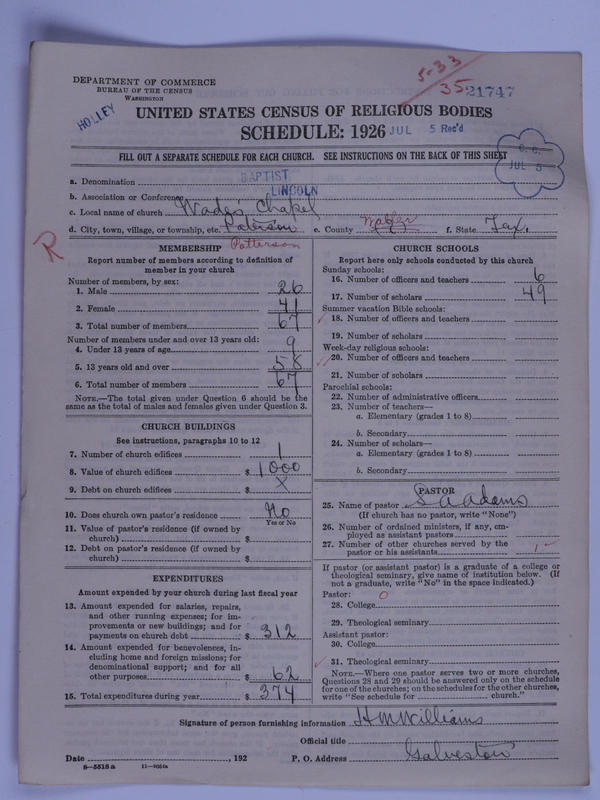 5-33
35 21747
DEPARTMENT OF COMMERCE
BUREAU OF THE CENSUS
WASHINGTON
HOLLEY
UNITED STATES CENSUS OF RELIGIOUS BODIES
SCHEDULE: 1926 JUL 5 Rec'd
FILL OUT A SEPARATE SCHEDULE FOR EACH CHURCH. SEE INSTRUCTIONS ON THE BACK OF THIS SHEET
JUL 5
a. Denomination BAPTIST
b. Association or Conference LINCOLN
c. Local name of church Wade's Chapel
d. City, town, village, or township, etc. Paterson e. County Waller f. State Tex.
R Patterson
MEMBERSHIP
Report number of members according to definition of
member in your church
Number of members, by sex:
1. Male 26
2. Female 41
3. Total number of members 67
Number of members under and over 13 years old:
4. Under 13 years of age 9
5. 13 years old and over 58
6. Total number of members 67
NOTE.—The total given under Question 6 should be the
same as the total of males and females given under Question 3.
CHURCH BUILDINGS
See instructions, paragraphs 10 to 12
7. Number of church edifices 1
8. Value of church edifices $ 1000
9. Debt on church edifices $ X
10. Does church own pastor's residence No
Yes or No
11. Value of pastor's residence (if owned by
church) $
12. Debt on pastor's residence (if owned by
church) $
EXPENDITURES
Amount expended by your church during last fiscal year
13. Amount expended for salaries, repairs,
and other running expenses; for im-
provements or new buildings; and for
payments on church debt $ 312
14. Amount expended for benevolences, in-
cluding home and foreign missions; for
denominational support; and for all
other purposes $ 62
15. Total expenditures during year $ 374
CHURCH SCHOOLS
Report here only schools conducted by this church
Sunday schools:
16. Number of officers and teachers 6
17. Number of scholars 49
Summer vacation Bible schools:
18. Number of officers and teachers
19. Number of scholars
Week-day religious schools:
20. Number of officers and teachers
21. Number of scholars
Parochial schools:
22. Number of administrative officers
23. Number of teachers—
a. Elementary (grades 1 to 8)
b. Secondary
24. Number of scholars—
a. Elementary (grades 1 to 8)
b. Secondary
PASTOR
25. Name of pastor S A Adams
(If church has no pastor, write "None")
26. Number of ordained ministers, if any, em-
ployed as assistant pastors
27. Number of other churches served by the
pastor or his assistants 1
If pastor (or assistant pastor) is a graduate of a college or
theological seminary, give name of institution below. (If
not a graduate, write "No" in the space indicated.)
Pastor: 0
28. College
29. Theological seminary
Assistant pastor:
30. College
31. Theological seminary
NOTE.—Where one pastor serves two or more churches,
Questions 28 and 29 should be answered only on the schedule
for one of the churches; on the schedules for the other churches,
write "See schedule for church."
Signature of person furnishing information H M Williams
Official title
Date , 192 P. O. Address Galveston
8-5518 a